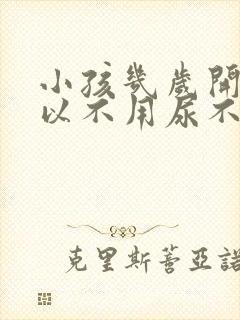 小孩幾歲開
以不用尿不
克里斯蒂亞諾